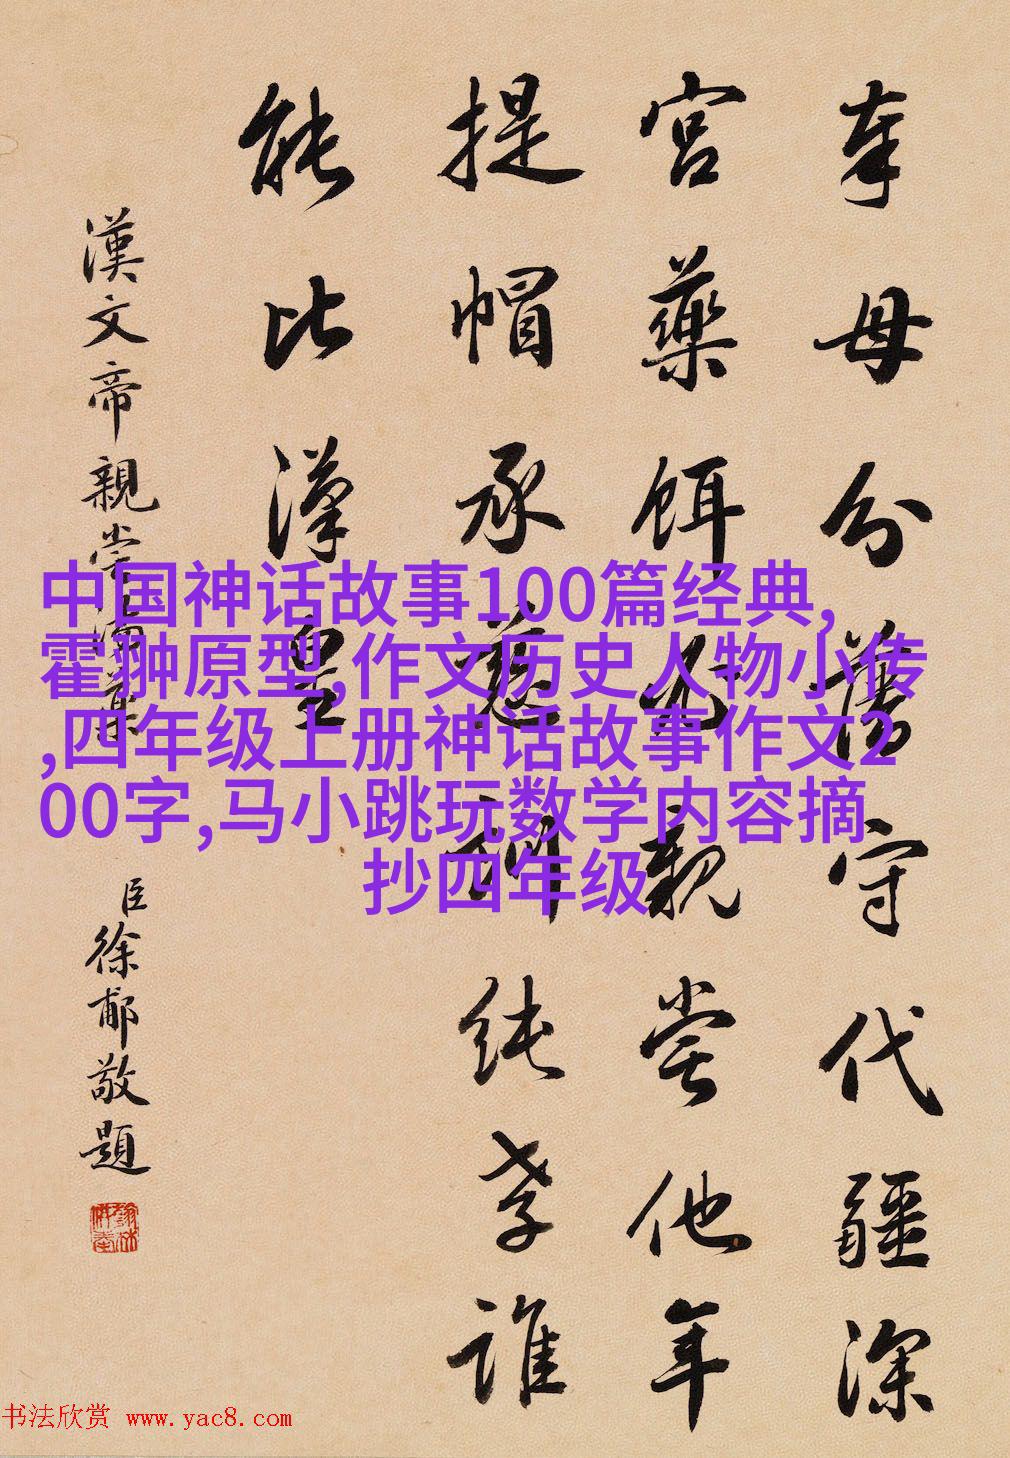 奉母分藩守代疆深
宮藥餌親嘗他年
提帽承慈訓純孝誰
能比漢皇
漢文帝親嘗湯藥
臣徐郙敬題
中国神话故事100篇经典,
霍翀原型,作文历史人物小传
,四年级上册神话故事作文2
00字,马小跳玩数学内容摘
抄四年级
书法欣赏 www.yac8.com